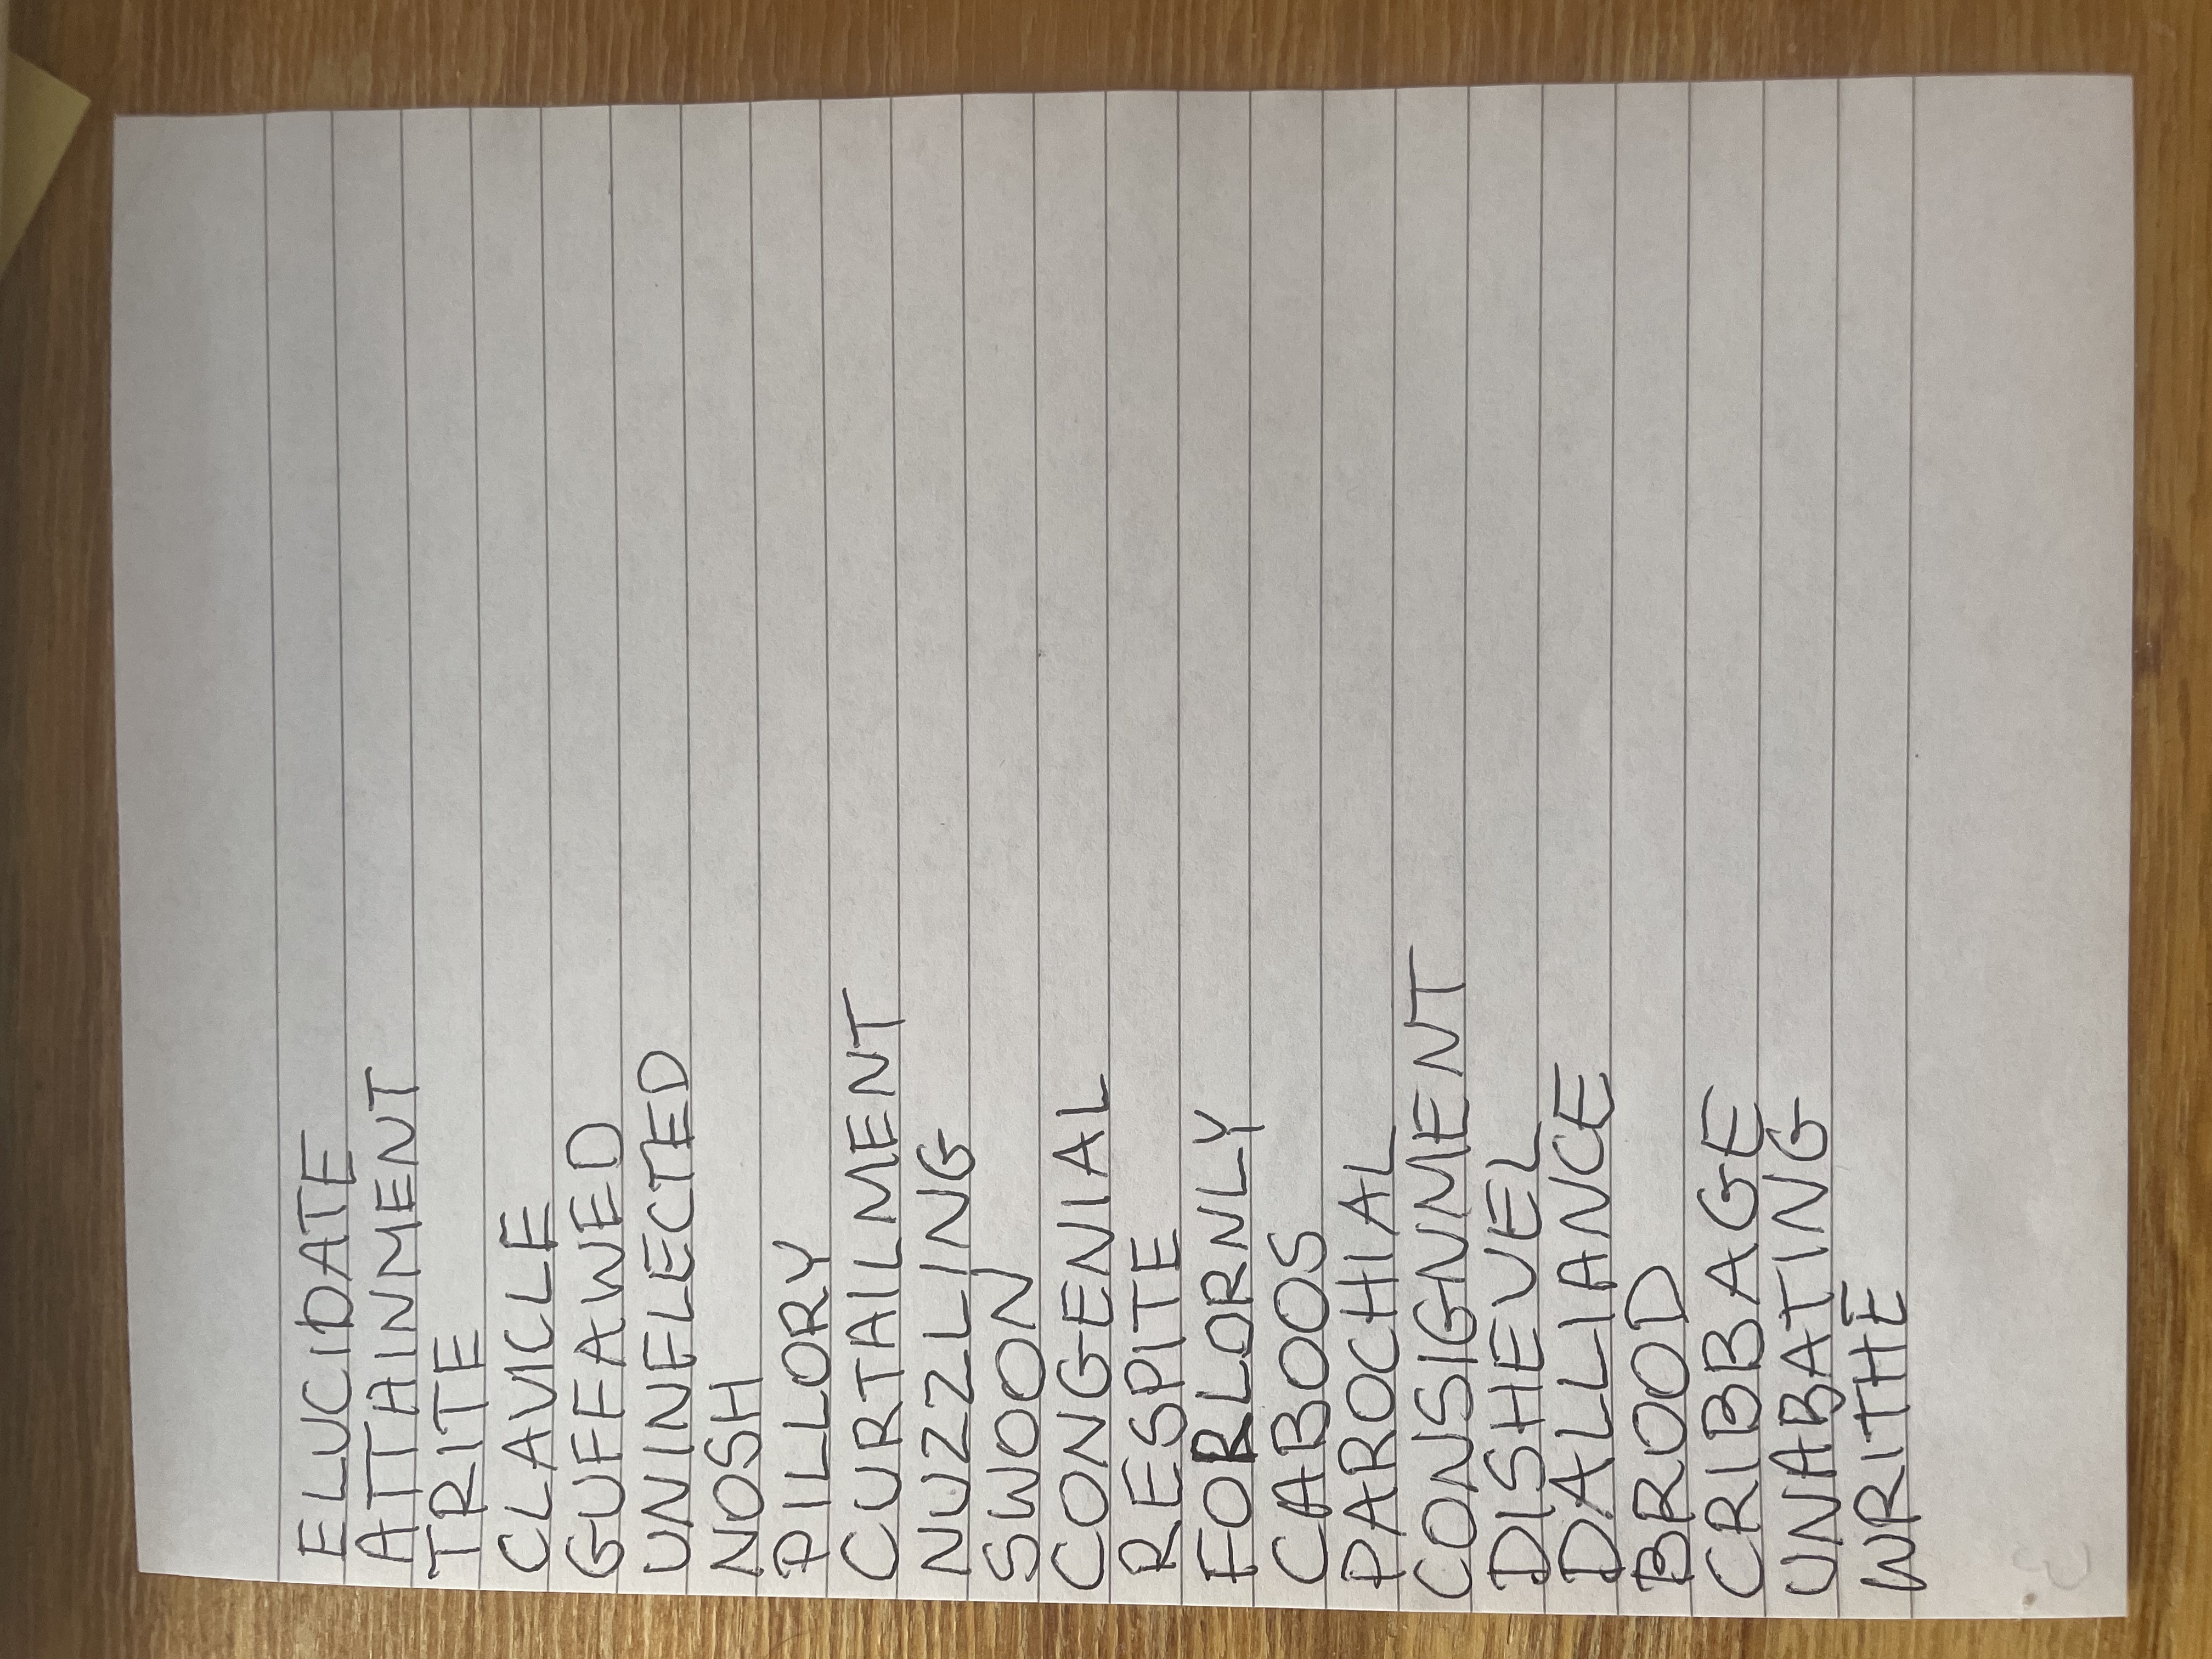 ELUCIDATE
ATTAINMENT
TRITE
CLAVICLE
GUFFAWED
UNINFLECTED
NOSH
PILLORY
CURTAILMENT
NUZZLING
SWOON
CONGENIAL
RESPITE
FORLORNLY
CABOOS
PAROCHIAL
CONSIGNMENT
DISHEVEL
DALLIANCE
BROOD
CRIBBAGE
UNABATING
WRITHE